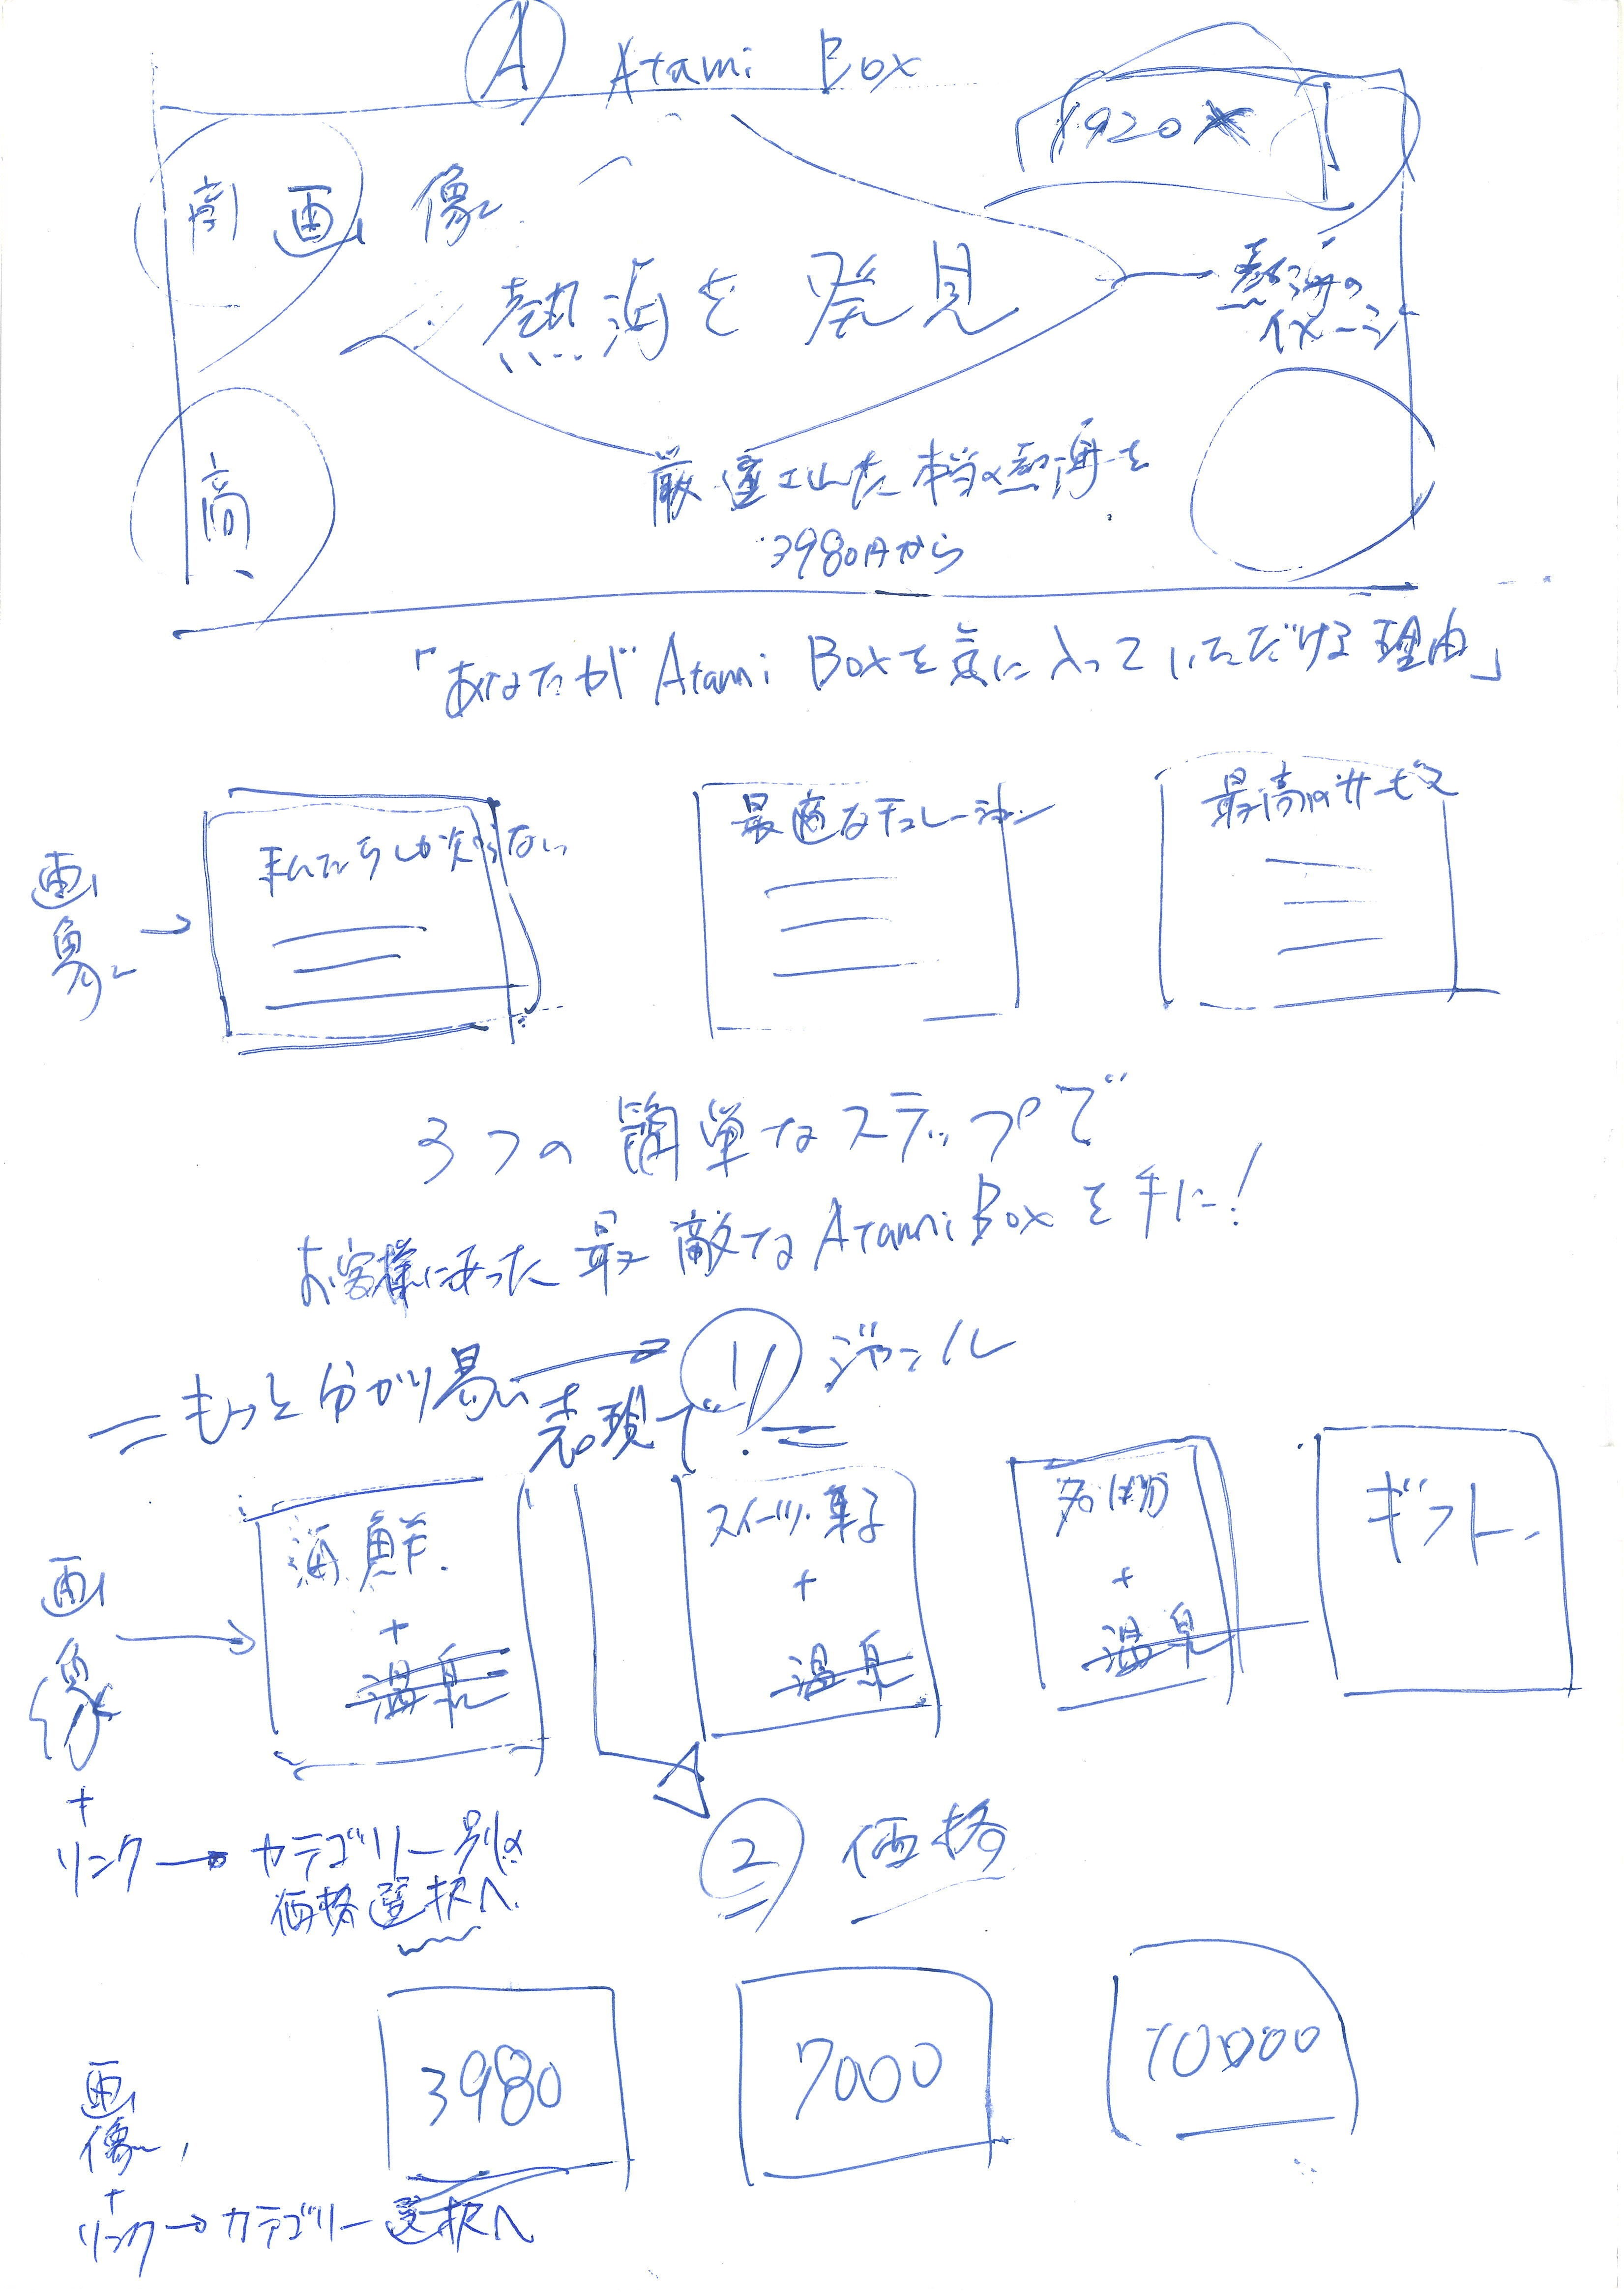 A Atami Box
1920×
商 画像
熱海を発見
熱海の
イメージ
商
厳選した本当の熱海を
3980円から
「あなたが Atami Boxを気に入っていただける理由」
画像→
私たちしか知らない
最適なキュレーション
最高のサービス
3つの簡単なステップで
お客様にあった最敵なAtami Boxを手に!
=もっと分かり易い表現で!=
① ジャンル
画像
+
リンク→カテゴリー別の
価格選択へ
海鮮
+
温泉
スイーツ・菓子
+
温泉
名物
+
温泉
ギフト
② 価格
3980
7000
10000
画像
+
リンク→カテゴリー選択へ